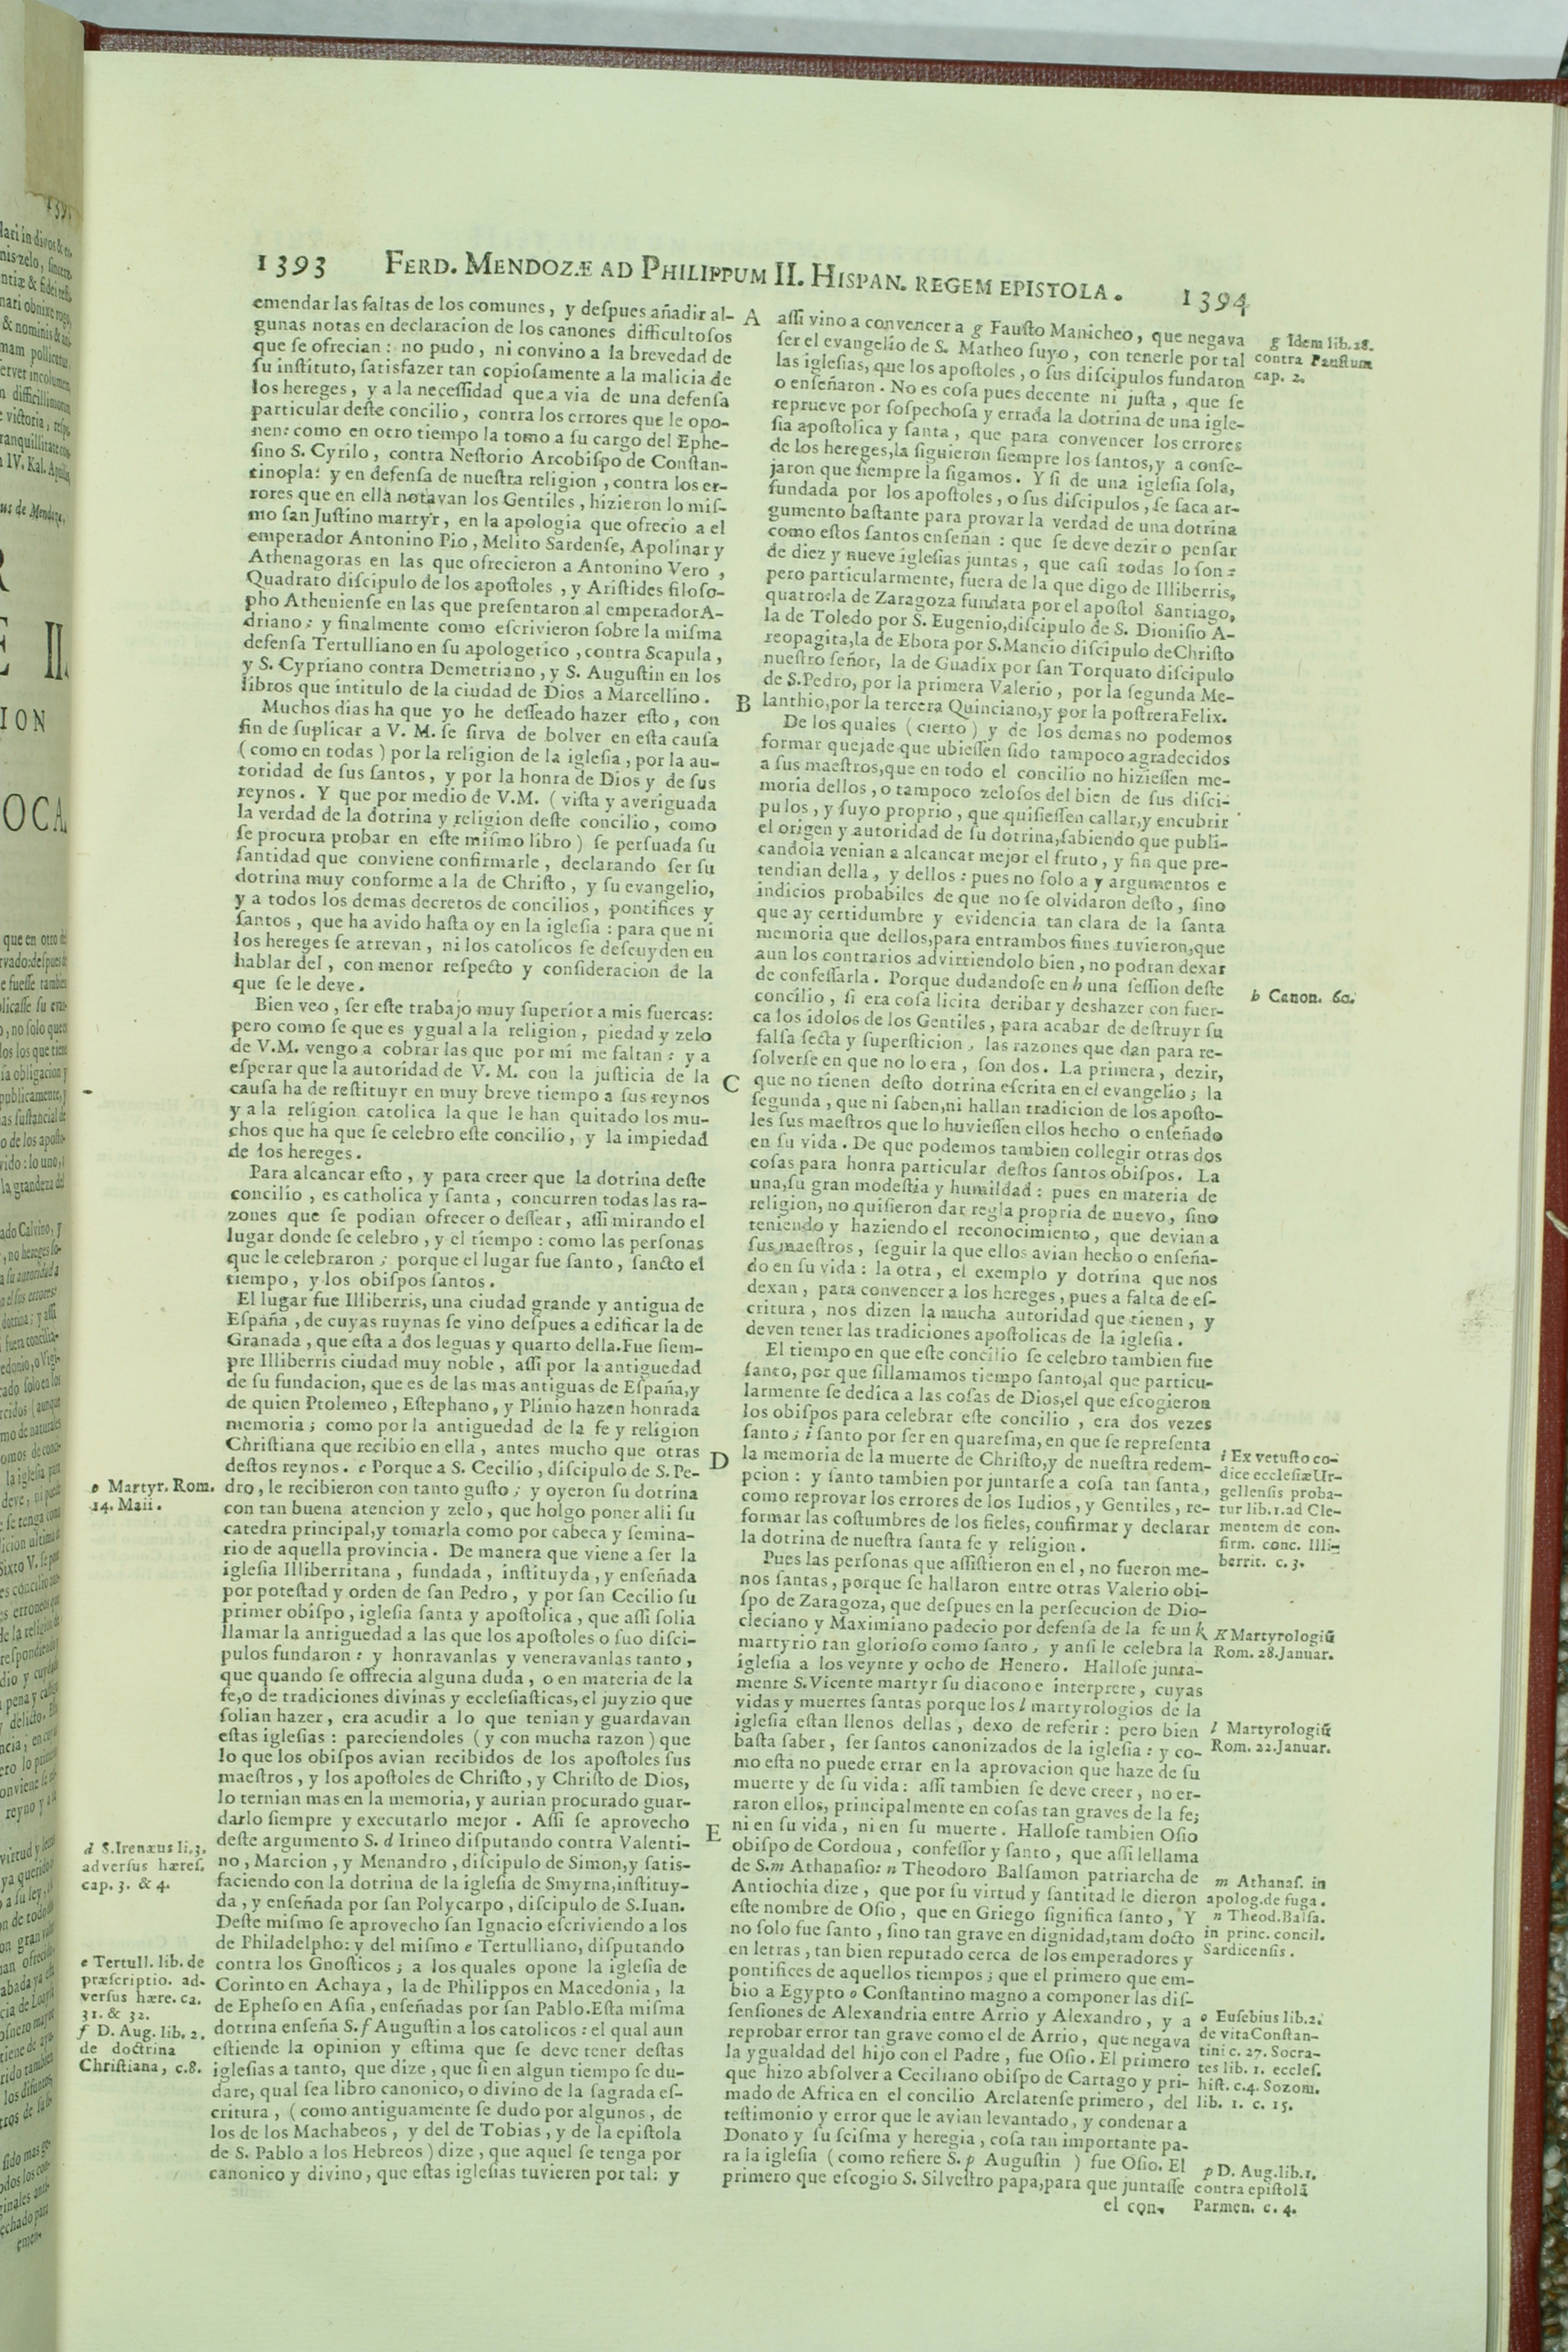 1393 FERD. MENDOZÆ AD PHILIPPUM II. HISPAN. REGEM EPISTOLA. 1394
emendar las faltas de los comunes, y deſpues añadir al-
gunas notas en declaracion de los canones difficultoſos
que ſe ofrecian: no pudo, ni convino a la brevedad de
ſu inſtituto, ſatisfazer tan copioſamente a la malicia de
los hereges, y a la neceſſidad que a via de una defenſa
particular deſte concilio, contra los errores que le opo-
nen: como en otro tiempo la tomo a ſu cargo del Ephe-
ſino S. Cyrilo, contra Neſtorio Arcobiſpo de Conſtan-
tinopla: y en defenſa de nueſtra religion, contra los er-
rores que en ella notavan los Gentiles, hizieron lo miſ-
mo ſan Juſtino martyr, en la apologia que ofrecio a el
emperador Antonino Pio, Melito Sardenſe, Apolinar y
Athenagoras en las que ofrecieron a Antonino Vero,
Quadrato diſcipulo de los apoſtoles, y Ariſtides filoſo-
pho Athenienſe en las que preſentaron al emperador A-
driano: y finalmente como eſcrivieron ſobre la miſma
defenſa Tertulliano en ſu apologetico, contra Scapula,
y S. Cypriano contra Demetriano, y S. Auguſtin en los
libros que intitulo de la ciudad de Dios a Marcellino.
Muchos dias ha que yo he deſſeado hazer eſto, con
fin de ſuplicar a V. M. ſe ſirva de bolver en eſta cauſa
(como en todas) por la religion de la igleſia, por la au-
toridad de ſus ſantos, y por la honra de Dios y de ſus
reynos. Y que por medio de V.M. (viſta y averiguada
la verdad de la dotrina y religion deſte concilio, como
ſe procura probar en eſte miſmo libro) ſe perſuada ſu
ſantidad que conviene confirmarle, declarando ſer ſu
dotrina muy conforme a la de Chriſto, y ſu evangelio,
y a todos los demas decretos de concilios, pontifices y
ſantos, que ha avido haſta oy en la igleſia: para que ni
los hereges ſe atrevan, ni los catolicos ſe deſcuyden en
hablar del, con menor reſpecto y conſideracion de la
que ſe le deve.
Bien veo, ſer eſte trabajo muy ſuperior a mis fuercas:
pero como ſe que es ygual a la religion, piedad y zelo
de V.M. vengo a cobrar las que por mi me faltan: y a
eſperar que la autoridad de V. M. con la juſticia de la
cauſa ha de reſtituyr en muy breve tiempo a ſus reynos
y a la religion catolica la que le han quitado los mu-
chos que ha que ſe celebro eſte concilio, y la impiedad
de los hereges.
Para alcancar eſto, y para creer que la dotrina deſte
concilio, es catholica y ſanta, concurren todas las ra-
zones que ſe podian ofrecer o deſſear, aſſi mirando el
lugar donde ſe celebro, y el tiempo: como las perſonas
que le celebraron; porque el lugar fue ſanto, ſancto el
tiempo, y los obiſpos ſantos.
El lugar fue Illiberris, una ciudad grande y antigua de
Eſpaña, de cuyas ruynas ſe vino deſpues a edificar la de
Granada, que eſta a dos leguas y quarto della. Fue ſiem-
pre Illiberris ciudad muy noble, aſſi por la antiguedad
de ſu fundacion, que es de las mas antiguas de Eſpaña, y
de quien Ptolemeo, Eſtephano, y Plinio hazen honrada
memoria; como por la antiguedad de la fe y religion
Chriſtiana que recibio en ella, antes mucho que otras
deſtos reynos. c Porque a S. Cecilio, diſcipulo de S. Pe-
dro, le recibieron con tanto guſto; y oyeron ſu dotrina
con tan buena atencion y zelo, que holgo poner alli ſu
catedra principal, y tomarla como por cabeca y ſemina-
rio de aquella provincia. De manera que viene a ſer la
igleſia Illiberritana, fundada, inſtituyda, y enſeñada
por poteſtad y orden de ſan Pedro, y por ſan Cecilio ſu
primer obiſpo, igleſia ſanta y apoſtolica, que aſſi ſolia
llamar la antiguedad a las que los apoſtoles o ſuo diſci-
pulos fundaron: y honravanlas y veneravanlas tanto,
que quando ſe offrecia alguna duda, o en materia de la
fe, o de tradiciones divinas y eccleſiaſticas, el juyzio que
ſolian hazer, era acudir a lo que tenian y guardavan
eſtas igleſias: pareciendoles (y con mucha razon) que
lo que los obiſpos avian recibidos de los apoſtoles ſus
maeſtros, y los apoſtoles de Chriſto, y Chriſto de Dios,
lo ternian mas en la memoria, y aurian procurado guar-
darlo ſiempre y executarlo mejor. Aſſi ſe aprovecho
deſte argumento S. d Irineo diſputando contra Valenti-
no, Marcion, y Menandro, diſcipulo de Simon, y ſatis-
faciendo con la dotrina de la igleſia de Smyrna, inſtituy-
da, y enſeñada por ſan Polycarpo, diſcipulo de S. Iuan.
Deſte miſmo ſe aprovecho ſan Ignacio eſcriviendo a los
de Philadelpho: y del miſmo e Tertulliano, diſputando
contra los Gnoſticos; a los quales opone la igleſia de
Corinto en Achaya, la de Philippos en Macedonia, la
de Epheſo en Aſia, enſeñadas por ſan Pablo. Eſta miſma
dotrina enſeña S. f Auguſtin a los catolicos: el qual aun
eſtiende la opinion y eſtima que ſe deve tener deſtas
igleſias a tanto, que dize, que ſi en algun tiempo ſe du-
dare, qual ſea libro canonico, o divino de la ſagrada eſ-
critura, (como antiguamente ſe dudo por algunos, de
los de los Machabeos, y del de Tobias, y de la epiſtola
de S. Pablo a los Hebreos) dize, que aquel ſe tenga por
canonico y divino, que eſtas igleſias tuvieren por tal: y
c Martyr. Rom.
14. Maii.
d S. Irenæus li. 3.
adverſus hæreſ.
cap. 3. & 4.
e Tertull. lib. de
præſcriptio. ad-
verſus hære. ca.
31. & 32.
f D. Aug. lib. 2.
de doctrina
Chriſtiana, c. 8.
A
B
C
D
E
aſſi vino a convencer a g Fauſto Manicheo, que negava
ſer el evangelio de S. Matheo ſuyo, con tenerle por tal
las igleſias, que los apoſtoles, o ſus diſcipulos fundaron
o enſeñaron. No es coſa pues decente ni juſta, que ſe
reprueve por ſoſpechoſa y errada la dotrina de una igle-
ſia apoſtolica y ſanta, que para convencer los errores
de los hereges, la ſiguieron ſiempre los ſantos, y a conſe-
jaron que ſiempre la ſigamos. Y ſi de una igleſia ſola,
fundada por los apoſtoles, o ſus diſcipulos, ſe ſaca ar-
gumento baſtante para provar la verdad de una dotrina
como eſtos ſantos enſeñan: que ſe deve dezir o penſar
de diez y nueve igleſias juntas, que caſi todas lo ſon:
pero particularmente, fuera de la que digo de Illiberris,
quatro: la de Zaragoza fundata por el apoſtol Santiago,
la de Toledo por S. Eugenio, diſcipulo de S. Dioniſio A-
reopagita, la de Ebora por S. Mancio diſcipulo de Chriſto
nueſtro ſeñor, la de Guadix por ſan Torquato diſcipulo
de S. Pedro, por la primera Valerio, por la ſegunda Me-
lanthio, por la tercera Quinciano, y por la poſtrera Felix.
De los quales (cierto) y de los demas no podemos
formar quejade que ubieſſen ſido tampoco agradecidos
a ſus maeſtros, que en todo el concilio no hizieſſen me-
moria dellos, o tampoco zeloſos del bien de ſus diſci-
pulos, y ſuyo proprio, que quiſieſſen callar, y encubrir
el origen y autoridad de ſu dotrina, ſabiendo que publi-
candola venian a alcancar mejor el fruto, y fin que pre-
tendian della, y dellos: pues no ſolo a y argumentos e
indicios probabiles de que no ſe olvidaron deſto, ſino
que ay certidumbre y evidencia tan clara de la ſanta
memoria que dellos, para entrambos fines tuvieron, que
aun los contrarios advirtiendolo bien, no podran dexar
de confeſſarla. Porque dudandoſe en h una ſeſſion deſte
concilio, ſi era coſa licita deribar y deshazer con fuer-
ca los idolos de los Gentiles, para acabar de deſtruyr ſu
falſa ſecta y ſuperſticion, las razones que dan para re-
ſolverſe en que no lo era, ſon dos. La primera, dezir,
que no tienen deſto dotrina eſcrita en el evangelio; la
ſegunda, que ni ſaben, ni hallan tradicion de los apoſto-
les ſus maeſtros que lo huvieſſen ellos hecho o enſeñado
en ſu vida. De que podemos tambien collegir otras dos
coſas para honra particular deſtos ſantos obiſpos. La
una, ſu gran modeſtia y humildad: pues en materia de
religion, no quiſieron dar regla propria de nuevo, ſino
teniendo y haziendo el reconocimiento, que devian a
ſus maeſtros, ſeguir la que ellos avian hecho o enſeña-
do en ſu vida: la otra, el exemplo y dotrina que nos
dexan, para convencer a los hereges, pues a falta de eſ-
critura, nos dizen la mucha autoridad que tienen, y
deven tener las tradiciones apoſtolicas de la igleſia.
El tiempo en que eſte concilio ſe celebro tambien fue
ſanto, por que ſi llamamos tiempo ſanto, al que particu-
larmente ſe dedica a las coſas de Dios, el que eſcogieron
los obiſpos para celebrar eſte concilio, era dos vezes
ſanto; i ſanto por ſer en quareſma, en que ſe repreſenta
la memoria de la muerte de Chriſto, y de nueſtra redem-
pcion: y ſanto tambien por juntarſe a coſa tan ſanta,
como reprovar los errores de los Iudios, y Gentiles, re-
formar las coſtumbres de los fieles, confirmar y declarar
la dotrina de nueſtra ſanta fe y religion.
Pues las perſonas que aſſiſtieron en el, no fueron me-
nos ſantas, porque ſe hallaron entre otras Valerio obi-
ſpo de Zaragoza, que deſpues en la perſecucion de Dio-
cleciano y Maximiano padecio por defenſa de la fe un k
martyrio tan glorioſo como ſanto, y anſi le celebra la
igleſia a los veynte y ocho de Henero. Halloſe junta-
mente S. Vicente martyr ſu diacono e interprete, cuyas
vidas y muertes ſantas porque los l martyrologios de la
igleſia eſtan llenos dellas, dexo de referir: pero bien
baſta ſaber, ſer ſantos canonizados de la igleſia: y co-
mo eſta no puede errar en la aprovacion que haze de ſu
muerte y de ſu vida: aſſi tambien ſe deve creer, no er-
raron ellos, principalmente en coſas tan graves de la fe;
ni en ſu vida, ni en ſu muerte. Halloſe tambien Oſio
obiſpo de Cordoua, confeſſor y ſanto, que aſſi lellama
de S. m Athanaſio: n Theodoro Balſamon patriarcha de
Antiochia dize, que por ſu virtud y ſantitad le dieron
eſte nombre de Oſio, que en Griego ſignifica ſanto, Y
no ſolo fue ſanto, ſino tan grave en dignidad, tam docto
en letras, tan bien reputado cerca de los emperadores y
pontifices de aquellos tiempos; que el primero que em-
bio a Egypto o Conſtantino magno a componer las diſ-
ſenſiones de Alexandria entre Arrio y Alexandro, y a
reprobar error tan grave como el de Arrio, que negava
la ygualdad del hijo con el Padre, fue Oſio. El primero
que hizo abſolver a Ceciliano obiſpo de Cartago y pri-
mado de Africa en el concilio Arelatenſe primero, del
teſtimonio y error que le avian levantado, y condenar a
Donato y ſu ſciſma y heregia, coſa tan importante pa-
ra la igleſia (como refiere S. p Auguſtin) fue Oſio. El
primero que eſcogio S. Silveſtro papa, para que juntaſſe
el con-
g Idem lib. 28.
contra Fauſtum
cap. 2.
h Canon. 60.
i Ex vetuſto co-
dice eccleſiæ Ur-
gellenſis proba-
tur lib. 1. ad Cle-
mentem de con-
firm. conc. Illi-
berrit. c. 3.
K Martyrologiũ
Rom. 28. Januar.
l Martyrologiũ
Rom. 22. Januar.
m Athanaſ. in
apolog. de fuga.
n Theod. Balſa.
in princ. concil.
Sardicenſis.
o Euſebius lib. 2.
de vita Conſtan-
tini c. 27. Socra-
tes lib. 1. eccleſ.
hiſt. c. 4. Sozom.
lib. 1. c. 15.
p D. Aug. lib. 1.
contra epiſtolã
Parmen. c. 4.